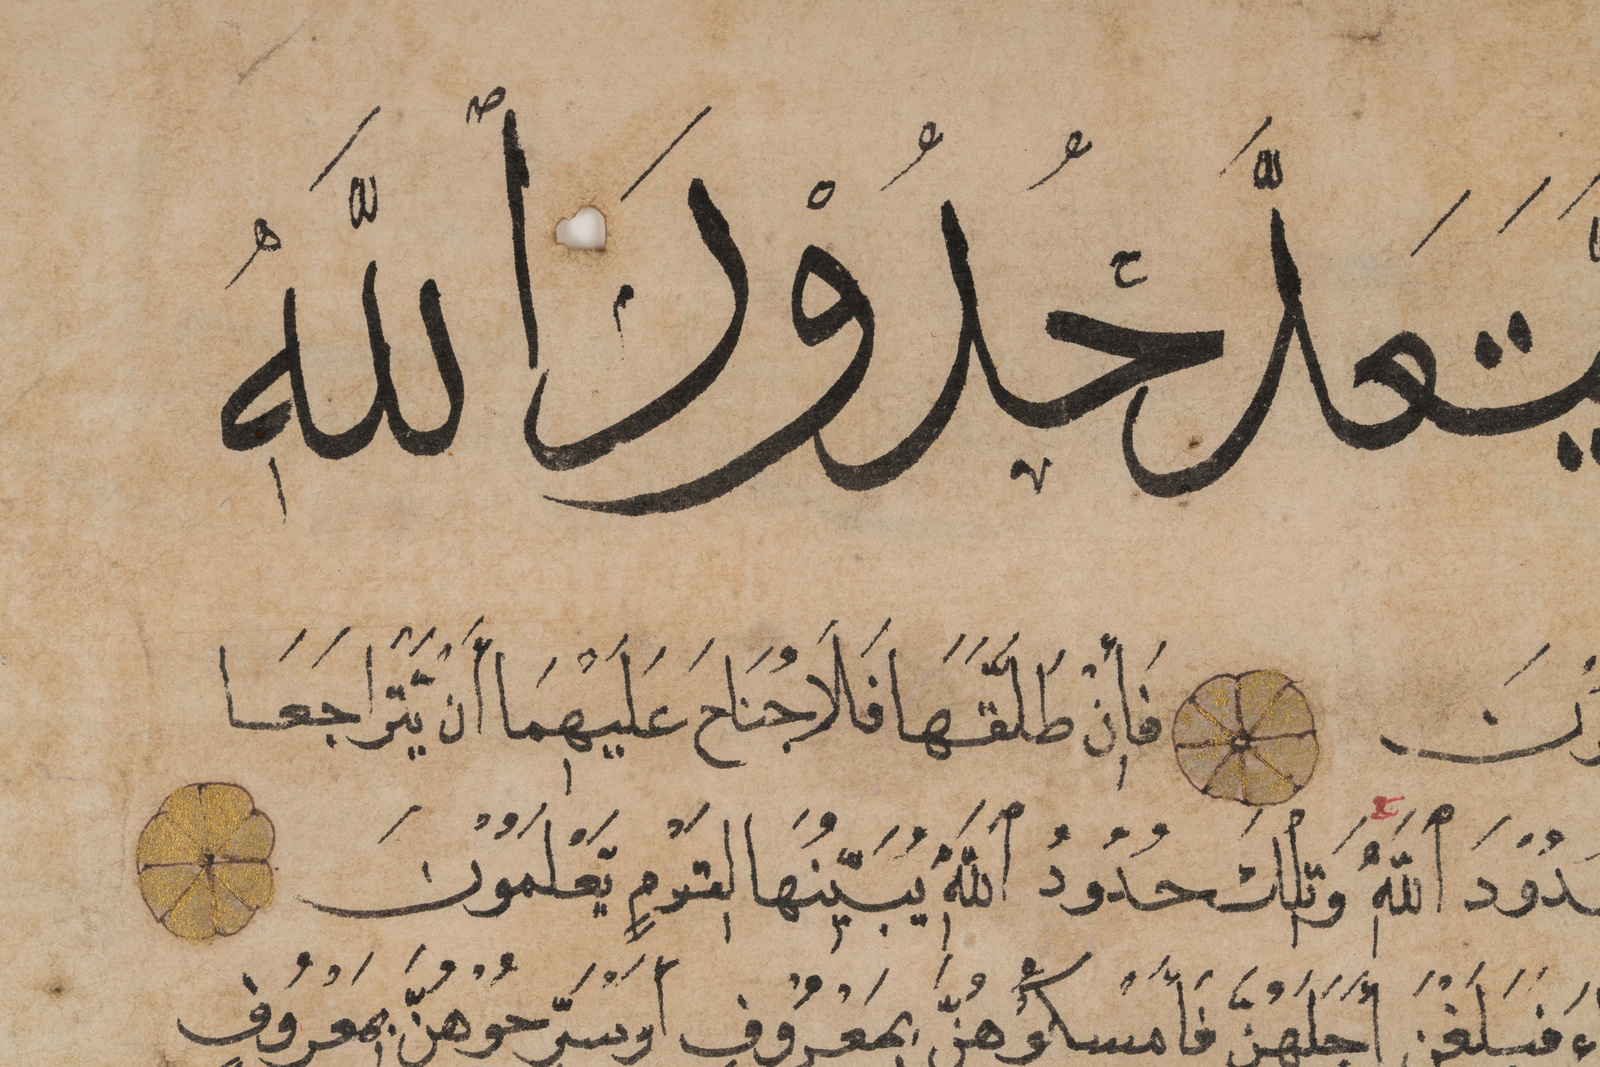 يَّتَعَدَّ حُدُوْدَ اللّٰهِ
فَاِنْ طَلَّقَهَا فَلَا جُنَاحَ عَلَيْهِمَا أَنْ يَتَرَاجَعَا
اللّٰهِ وَتِلْكَ حُدُودُ اللّٰهِ يُبَيِّنُهَا لِقَوْمٍ يَعْلَمُوْنَ
فَبَلَغْنَ أَجَلَهُنَّ فَأَمْسِكُوْهُنَّ بِمَعْرُوْفٍ أَوْ سَرِّحُوْهُنَّ بِمَعْرُوْفٍ